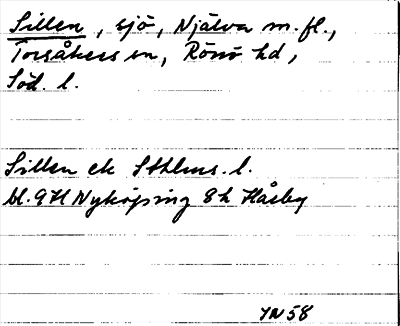 Sillen, sjö, Njälva m.fl.,
Torsåkers sn, Rönö hd,
Söd. l.
Sillen ek Sthlms. l.
bl. 9H Nyköping 8h Håsby
YN58